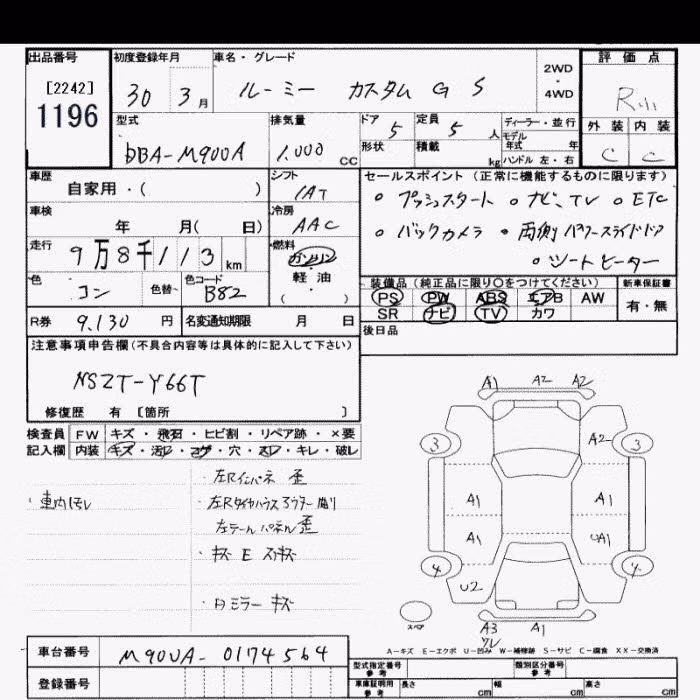 出品番号 初度登録年月 車名・グレード 評価点
[2242] 30 3月 ルーミー カスタム G S 2WD ・ 4WD R
1196 外装 内装
型式 排気量 ドア 定員 ディーラー・並行
DBA-M900A 1.000 CC 5 5 人 モデル年式 年
形状 積載 kg ハンドル 左・右 C C
車歴 自家用・( ) シフト IAT セールスポイント(正常に機能するものに限ります)
車検 年 月( 日) 冷房 AAC ○プッシュスタート ○ナビ、TV ○ETC
走行 9万8千113km 燃料 ガソリン ○バックカメラ ○両側パワースライドドア
軽油 ( ) ○シートヒーター
色 コン 色替 色コード B82 装備品(純正品に限り○をつけてください) 新車保証書
PS PW ABS エアB AW 有・無
R券 9.130円 名変通知期限 月 日 SR ナビ TV カワ
後日品
注意事項申告欄(不具合内容等は具体的に記入して下さい)
NSZT-Y66T
修復歴 有 [箇所 ]
検査員 FW キズ・飛石・ヒビ割・リペア跡・×要
記入欄 内装 キズ・汚レ・コゲ・穴・スレ・キレ・破レ
・左Rインパネ 歪
・車内汚レ ・左Rタイヤハウス アウター 曲り
左テールパネル歪
・キズ E スリキズ
・Rミラー キズ
A1 A2 A2
3 A2 3
A1 A1
A1 UA1
4 4
U2
スペア A3 ワレ A1
A-キズ E-エクボ U-凹み W-補修跡 S-サビ C-腐食 XX-交換済
車台番号 M900A-0174564
型式指定番号 参考 類別区分番号 参考
登録番号 車庫証明用 参考 長さ cm 幅 cm 高さ cm